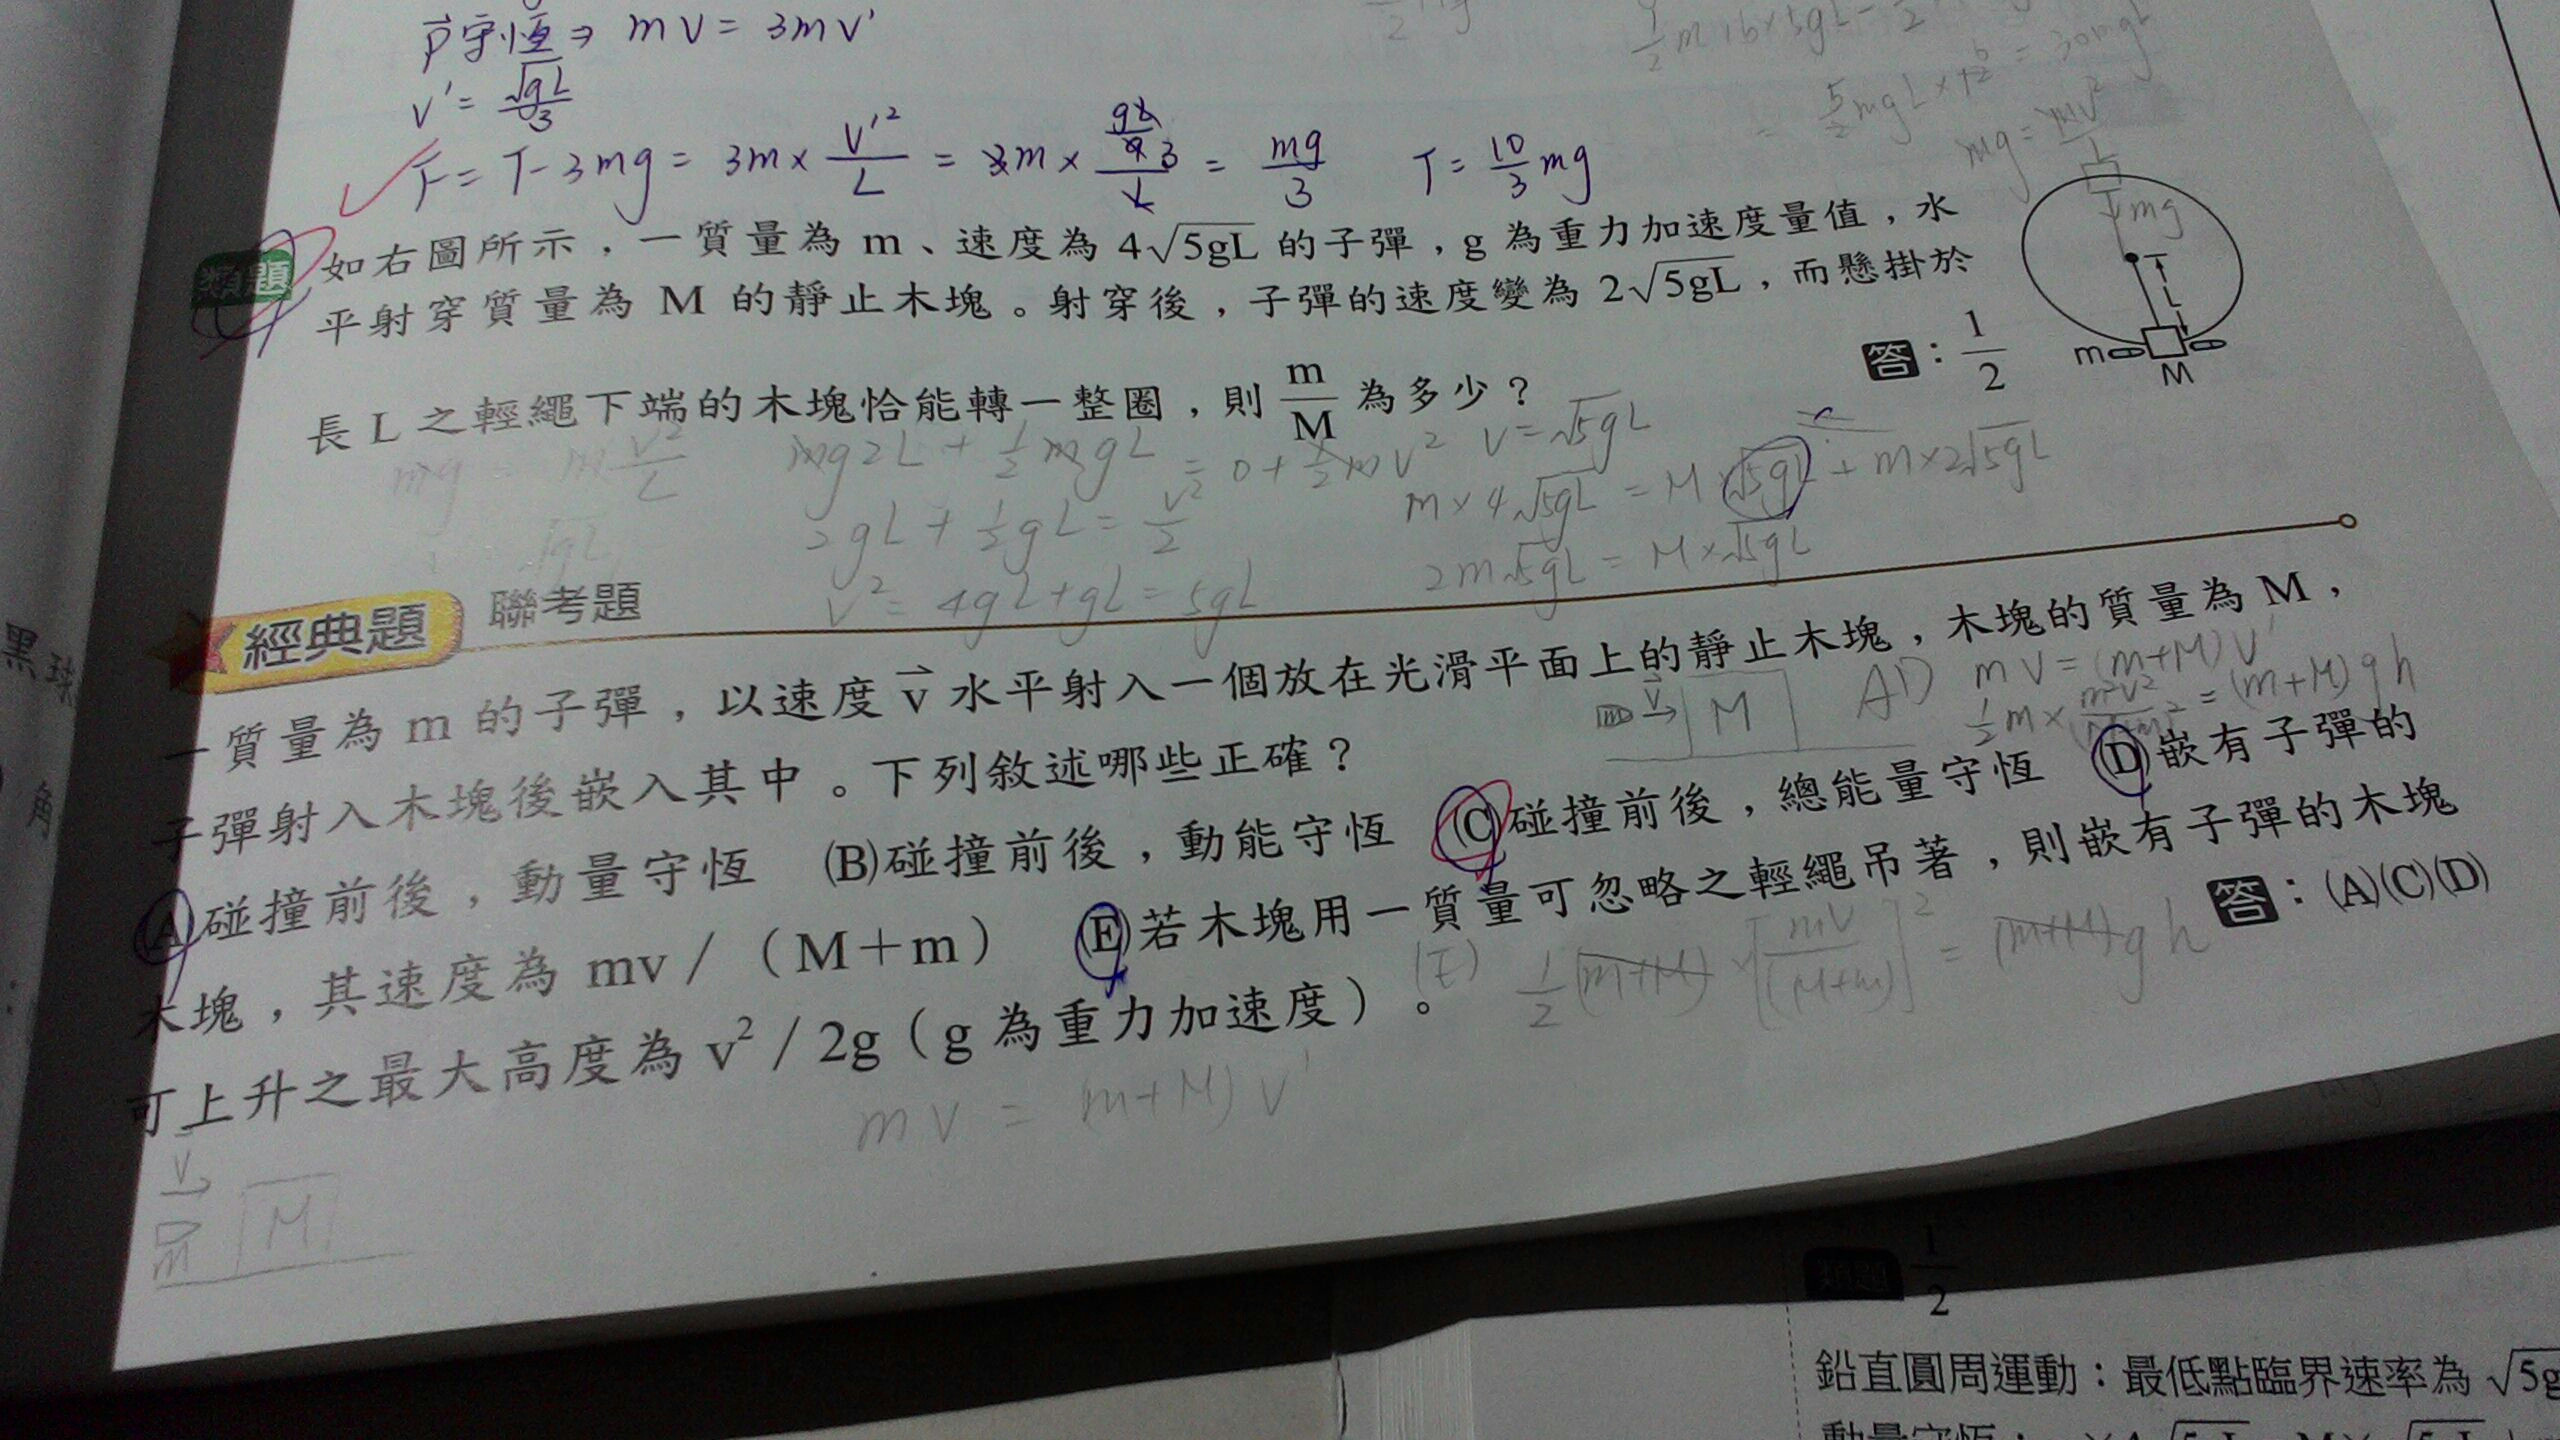 P守恆⇒ mv = 3mv'
v' = √gL/3
F = T - 3mg = 3m × v'²/L = 3m × = mg/3 T = 10/3 mg
類題 如右圖所示，一質量為 m、速度為 4√5gL 的子彈，g 為重力加速度量值，水
平射穿質量為 M 的靜止木塊。射穿後，子彈的速度變為 2√5gL，而懸掛於
長 L 之輕繩下端的木塊恰能轉一整圈，則 m/M 為多少？
答：1/2
mg = mv²/L
mg
L
m
M
mg = m v²/L
mg2L + 1/2 mgL = 0 + 1/2 mv² v = √5gL
2gL + 1/2 gL = v²/2
v² = 4gL + gL = 5gL
m × 4√5gL = M × √5gL + m × 2√5gL
2m√5gL = M × √5gL
經典題 聯考題
一質量為 m 的子彈，以速度 v⃗ 水平射入一個放在光滑平面上的靜止木塊，木塊的質量為 M，
子彈射入木塊後嵌入其中。下列敘述哪些正確？
m v⃗ M
mv = (m+M)v'
(A)碰撞前後，動量守恆 (B)碰撞前後，動能守恆 (C)碰撞前後，總能量守恆 (D)嵌有子彈的
木塊，其速度為 mv／（M＋m） (E)若木塊用一質量可忽略之輕繩吊著，則嵌有子彈的木塊
可上升之最大高度為 v²／2g（g 為重力加速度）。
答：(A)(C)(D)
(E) 1/2 (m+M) × [mv/(M+m)]² = (m+M)gh
mv = (m+M)v'
v m M
類題 1/2
鉛直圓周運動：最低點臨界速率為 √5g